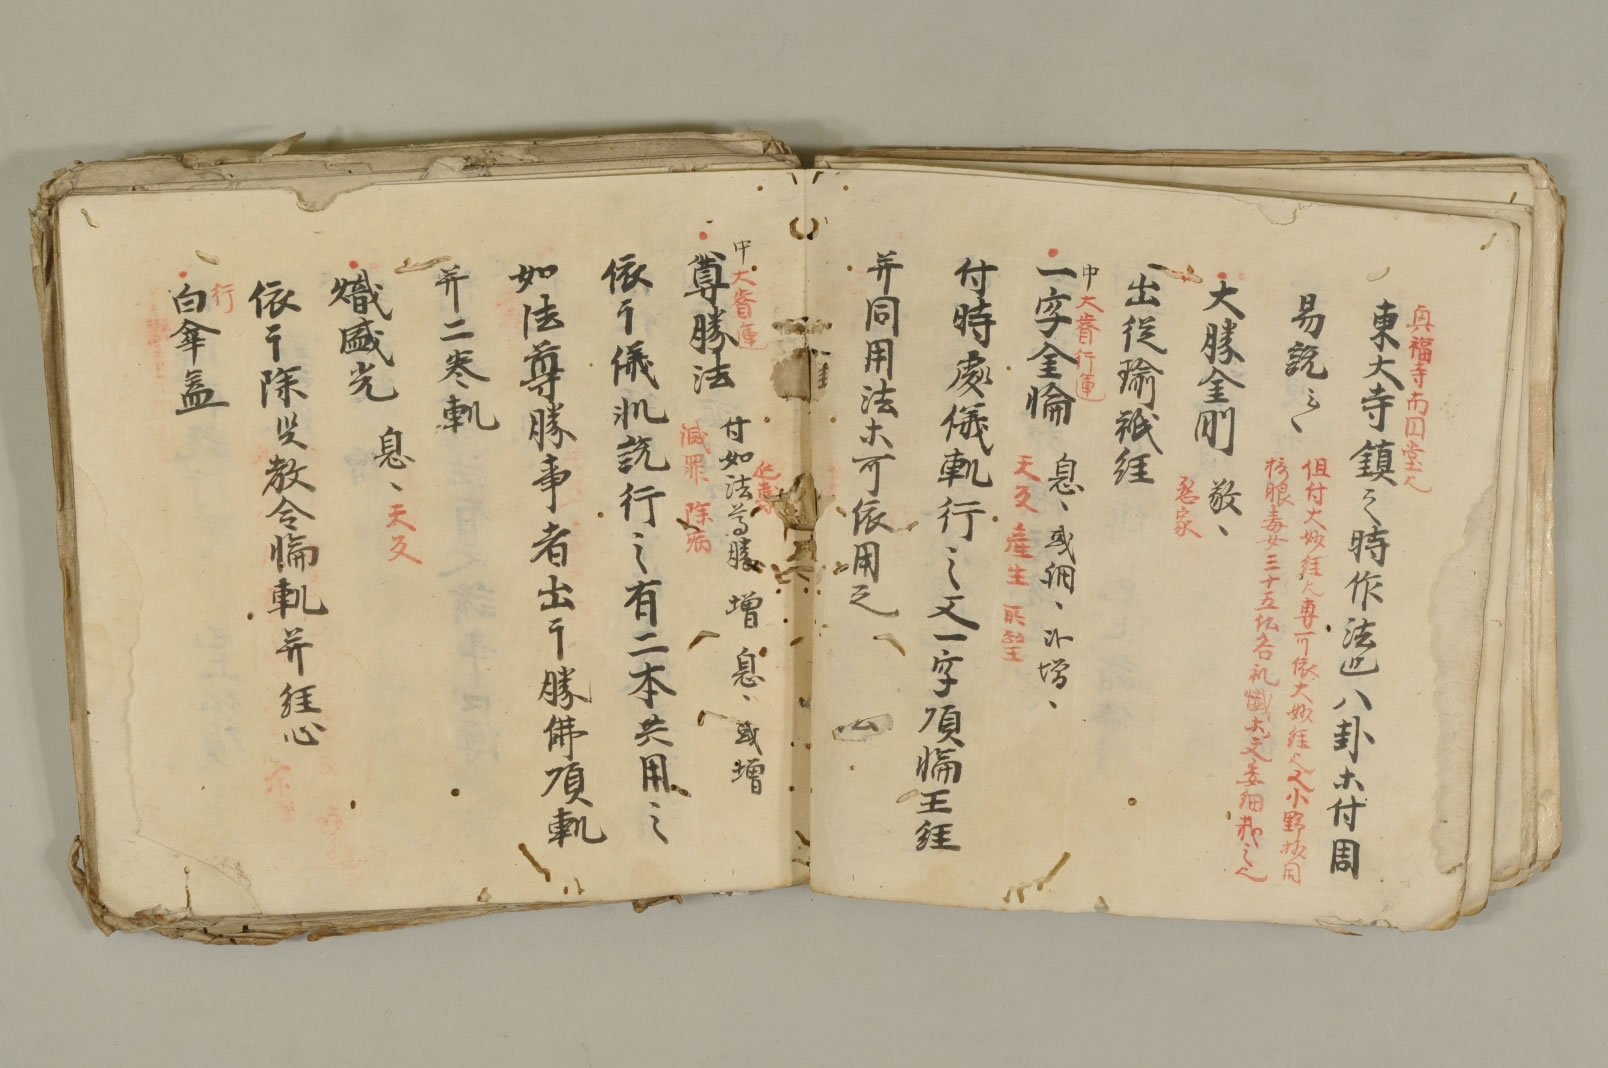 興福寺南円堂
東大寺鎮之時作法也八卦木付周
易説之〻
但付大妙経専可依大妙経又小野
大勝金剛 敬、
怨家
出従瑜祇経
中 大 行運
一字金輪 息、或調、増、
天変 産生 所望
付時處儀軌行之又一字頂輪王経
并同用法木可依用之
中 大 運
尊勝法 付如法尊勝 増 息、或増
滅罪 除病
依下儀軌説行之有二本共用之
如法尊勝事者出下勝佛頂軌
并二巻軌
熾盛光 息、天変
依下除災教令輪軌并経心
行
白傘蓋